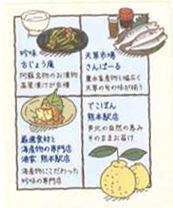 吟味
ちじょう庵
阿蘇名物のお漬物
高菜漬けが自慢
天草市場
さんぱーる
農水畜産物と幅広く
天草の旬の味が揃う
厳選食材と
海産物の専門店
港家 熊本駅店
海産物にこだわった
吟味の専門店
でこぽん
熊本駅店
芦北の自然の恵み
そのままお届け